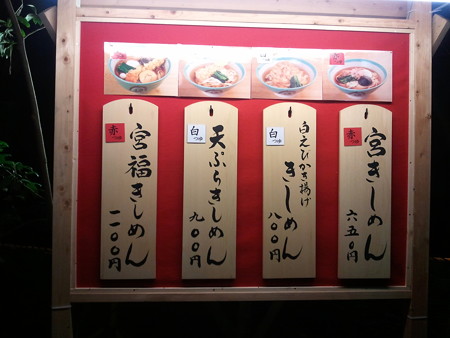 赤
つゆ
宮きしめん
六五〇円
白
つゆ
白えびかき揚げ
きしめん
八〇〇円
白
つゆ
天ぷらきしめん
九〇〇円
赤
つゆ
宮福きしめん
一一〇〇円